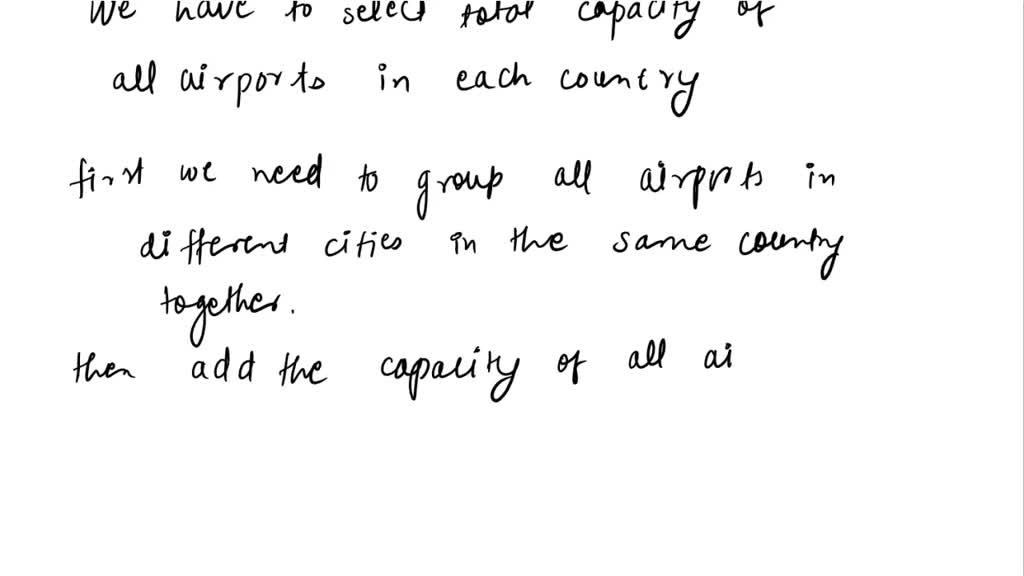 We have to select total capacity of
all airports in each country
first we need to group all airports in
different cities in the same country
together.
then add the capacity of all ai